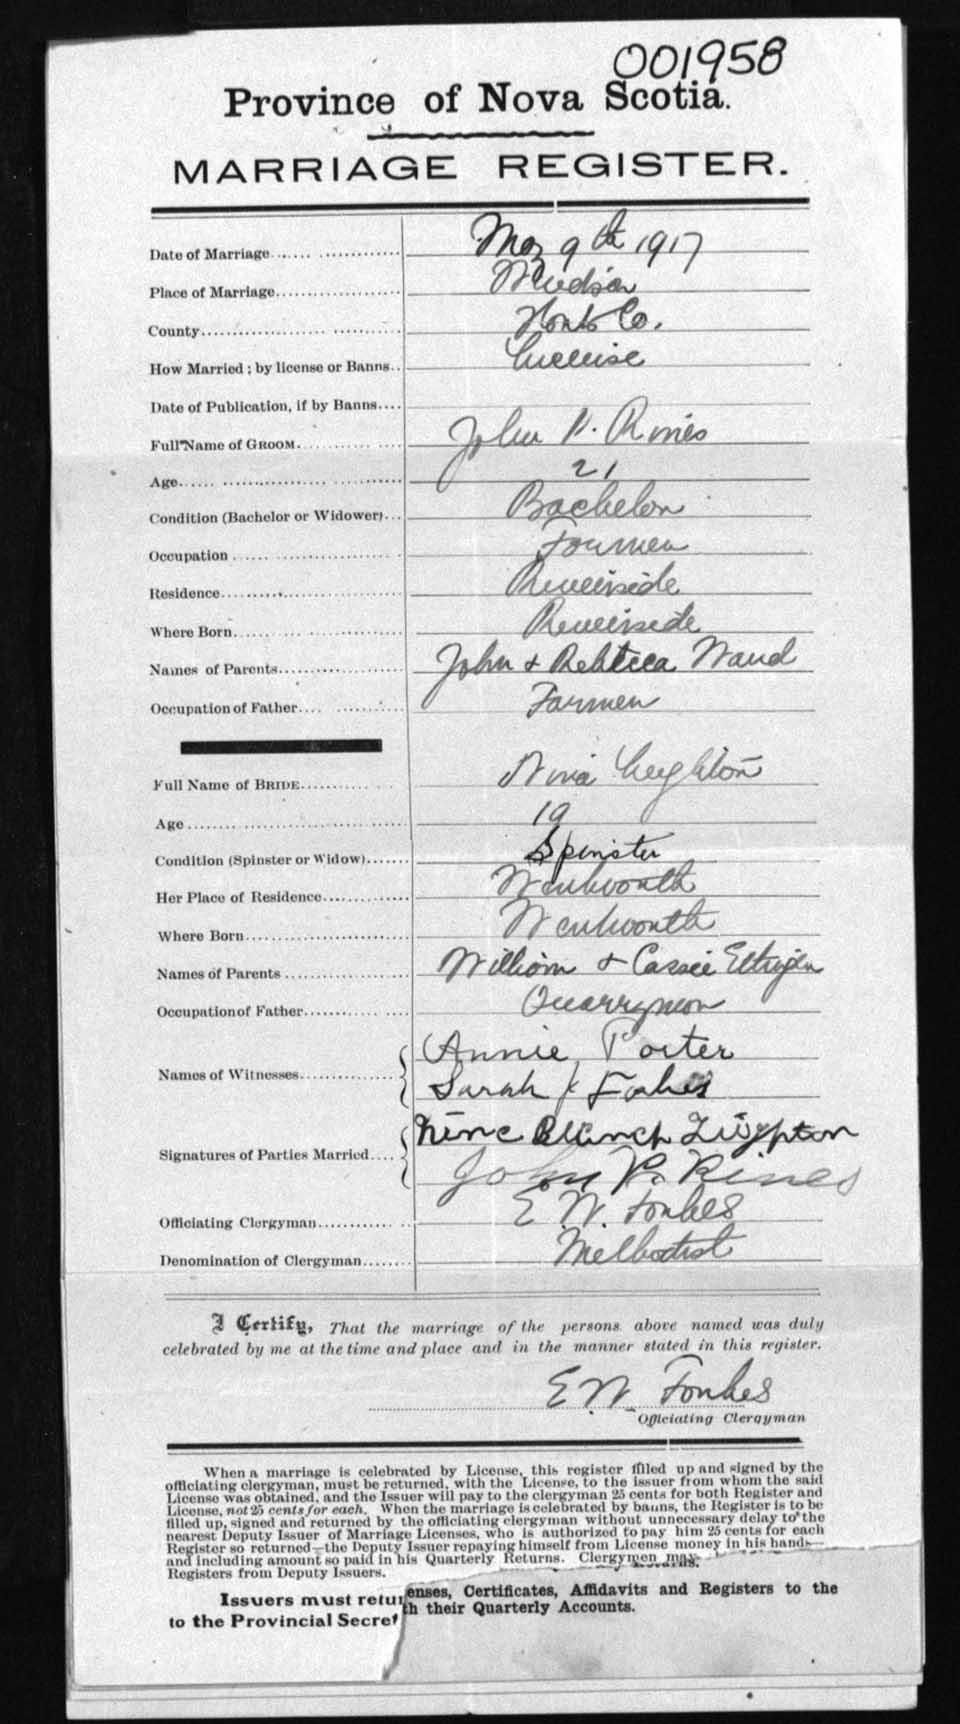 001958
Province of Nova Scotia.
MARRIAGE REGISTER.
Date of Marriage May 9th 1917
Place of Marriage Windsor
County Hants Co.
How Married; by license or Banns License
Date of Publication, if by Banns
Full Name of GROOM John P. Rines
Age 21
Condition (Bachelor or Widower) Bachelor
Occupation Farmer
Residence Riverside
Where Born Riverside
Names of Parents John & Rebecca Ward
Occupation of Father Farmer
Full Name of BRIDE Nina Leighton
Age 19
Condition (Spinster or Widow) Spinster
Her Place of Residence Wentworth
Where Born Wentworth
Names of Parents William & Cassie
Occupation of Father Quarryman
Names of Witnesses Annie Porter
Sarah J Forbes
Signatures of Parties Married Nina Blanch
John P. Rines
Officiating Clergyman E. W. Forbes
Denomination of Clergyman Methodist
I Certify, That the marriage of the persons above named was duly
celebrated by me at the time and place and in the manner stated in this register.
E. W. Forbes
Officiating Clergyman
When a marriage is celebrated by License, this register filled up and signed by the
officiating clergyman, must be returned, with the License, to the issuer from whom the said
License was obtained, and the Issuer will pay to the clergyman 25 cents for both Register and
License, not 25 cents for each. When the marriage is celebrated by banns, the Register is to be
filled up, signed and returned by the officiating clergyman without unnecessary delay to the
nearest Deputy Issuer of Marriage Licenses, who is authorized to pay him 25 cents for each
Register so returned—the Deputy Issuer repaying himself from License money in his hands—
and including amount so paid in his Quarterly Returns. Clergymen may
Registers from Deputy Issuers.
Issuers must retur enses, Certificates, Affidavits and Registers to the
to the Provincial Secret h their Quarterly Accounts.